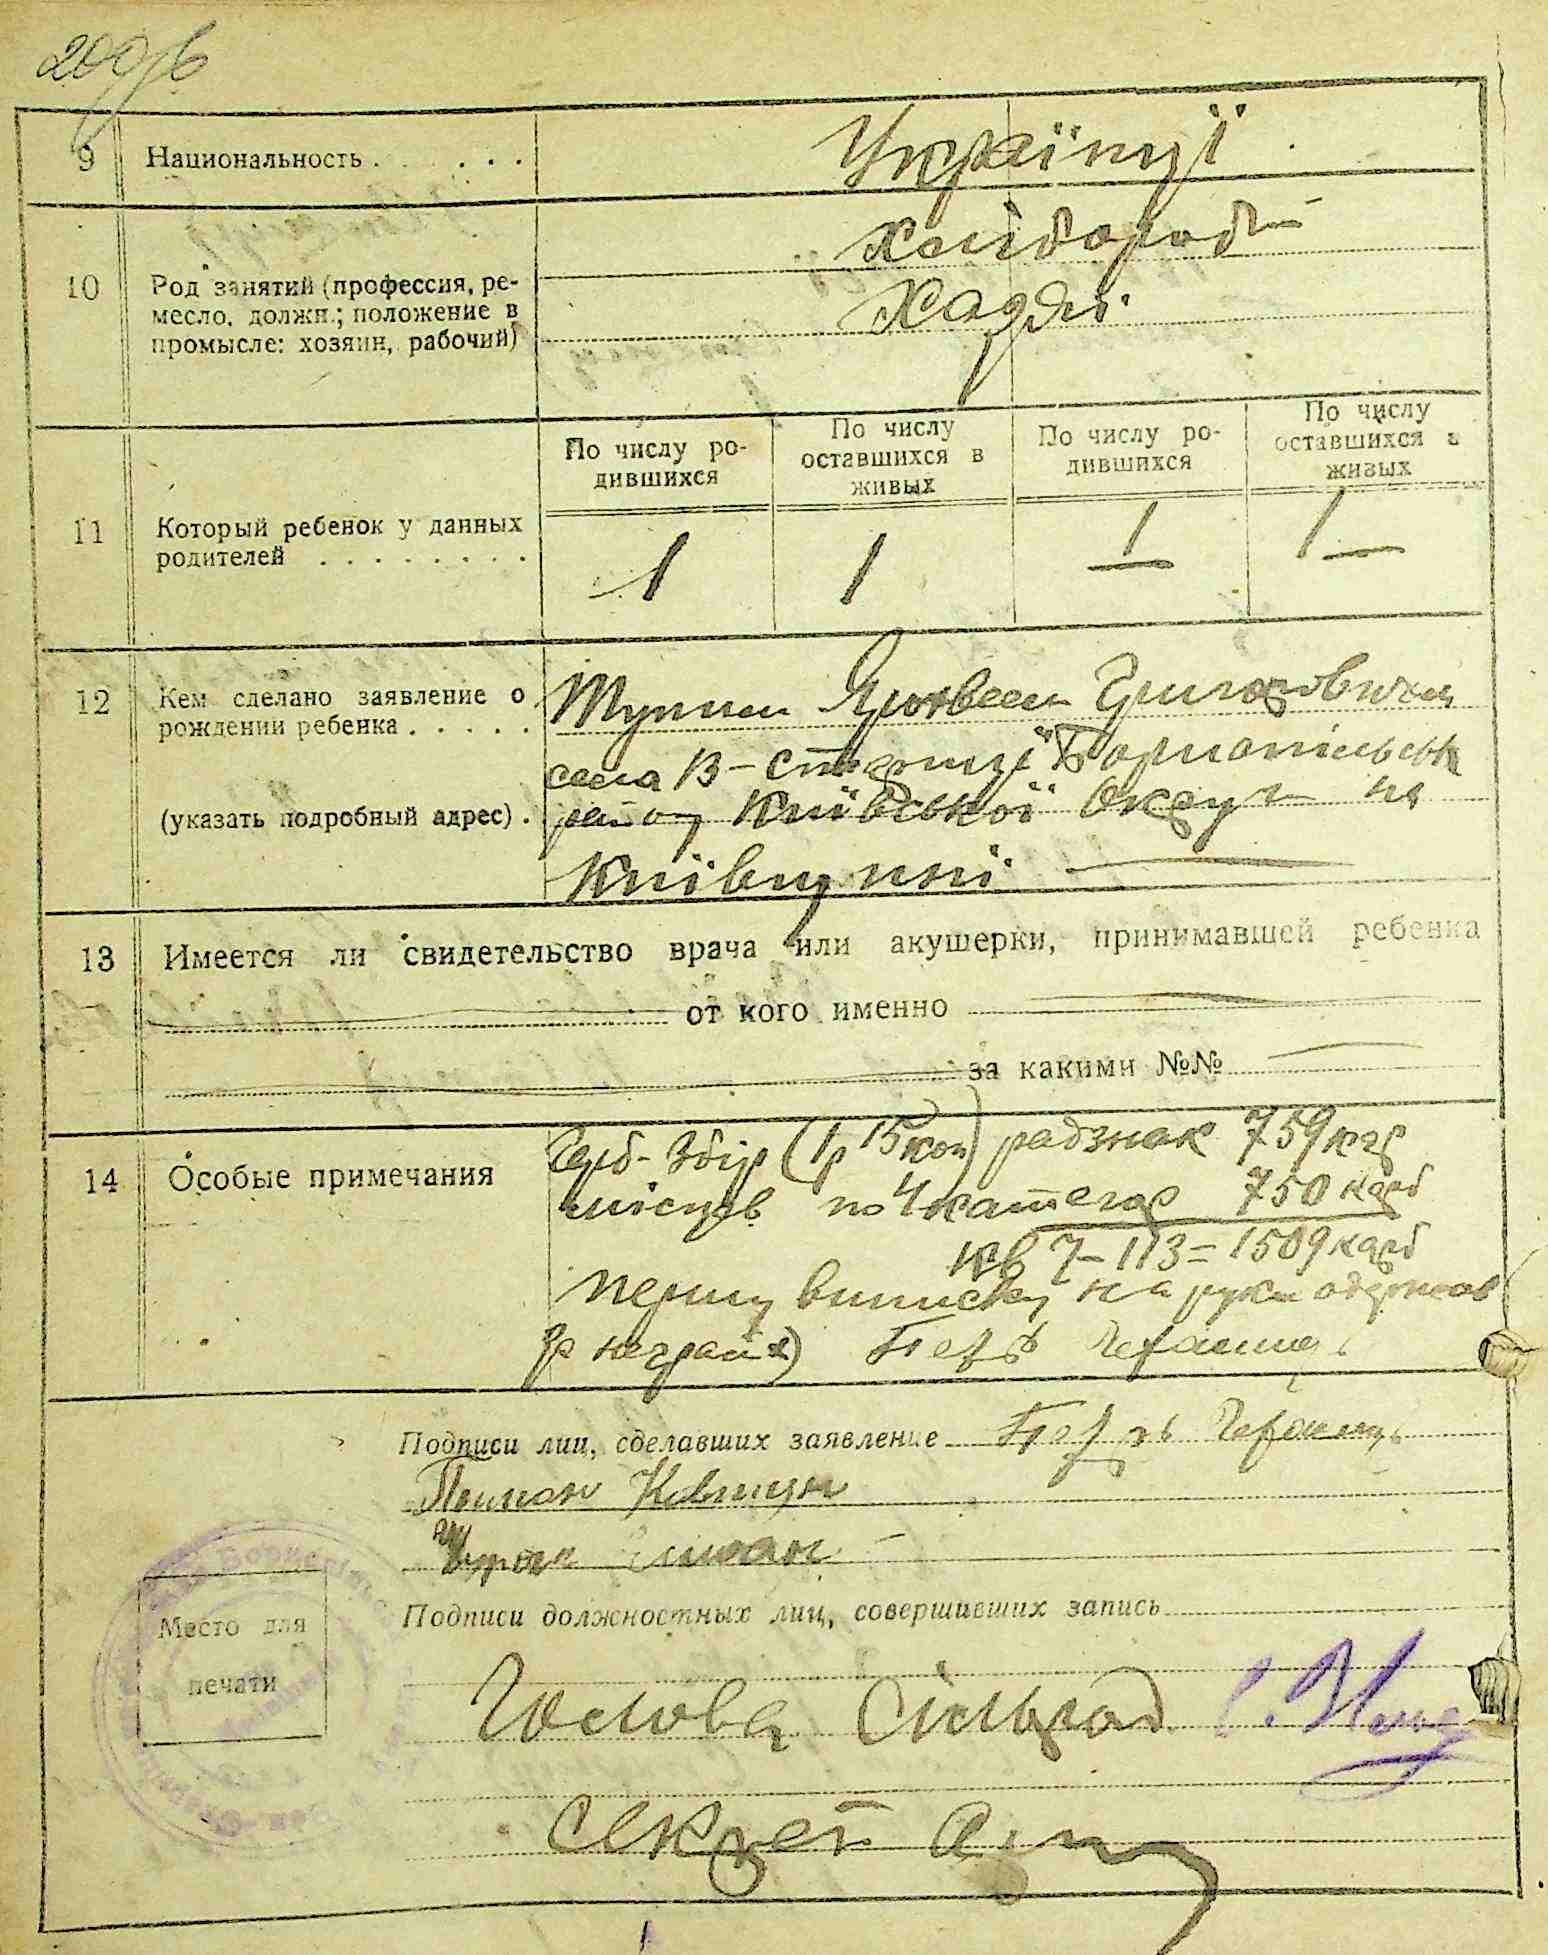 9 Национальность . . . . . . Українці
10 Род занятий (профессия, ре-
месло, должн.; положение в
промысле: хозяин, рабочий)
хлібороб
хазяї
По числу ро-
дившихся
По числу
оставшихся в
живых
По числу ро-
дившихся
По числу
оставшихся в
живых
11 Который ребенок у данных
родителей . . . . . . . .
1 1 1 1
12 Кем сделано заявление о
рождении ребенка . . . . .
(указать подробный адрес) .
Григоровичем
села В-Стариці Бориспільськ
району Київської Округи на
Київщині
13 Имеется ли свидетельство врача или акушерки, принимавшей ребенка
от кого именно
за какими №№
14 Особые примечания
Герб-збір (1р 15 коп) радзнак 759 крб
місцев по 4 категор 750 карб
кв 7-113 = 1509 карб
першу виписку на руки одержав
Подписи лиц, сделавших заявление
Место для
печати
Подписи должностных лиц, совершивших запись
Голова Сільрад
Секрет